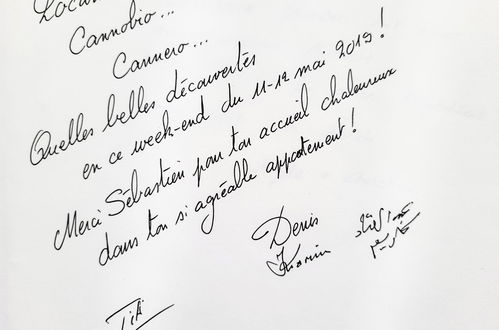 Cannobio...
Cannero...
Quelles belles découvertes
en ce week-end du 11-12 mai 2019 !
Merci Sébastien pour ton accueil chaleureux
dans ton si agréable appartement !
Denis
Titi